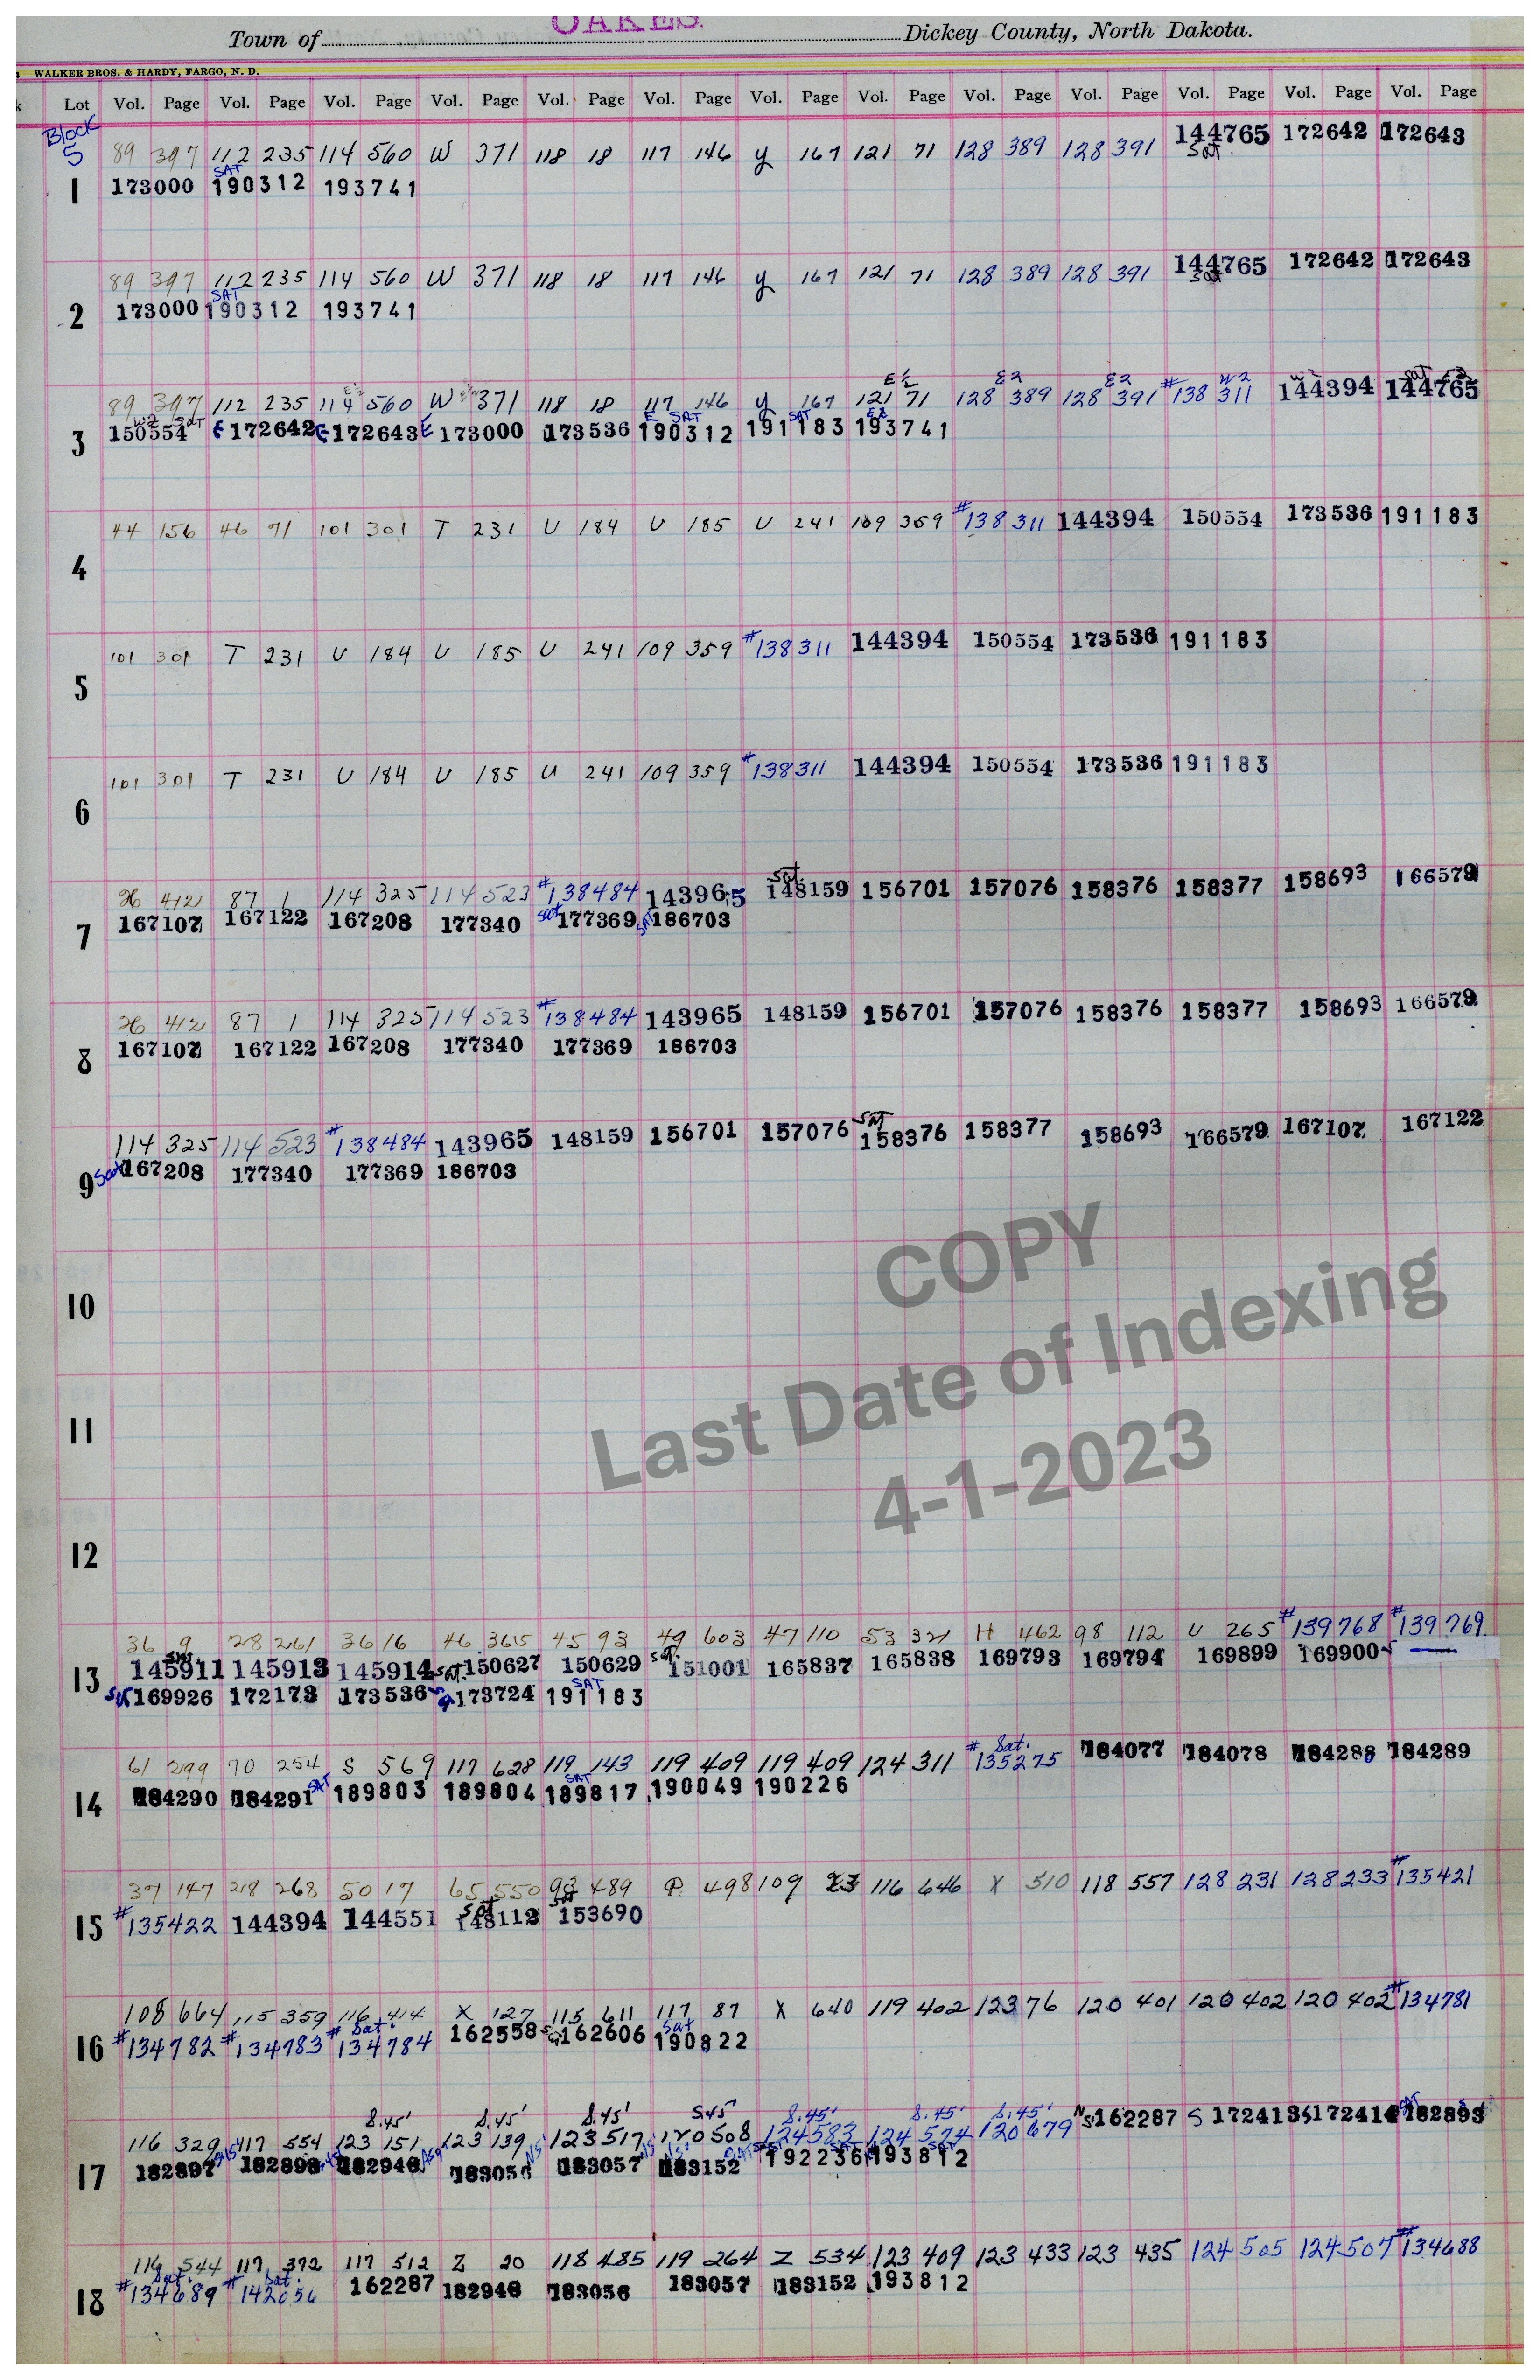 Town of OAKES. Dickey County, North Dakota.
WALKER BROS. & HARDY, FARGO, N. D.
Lot Vol. Page Vol. Page Vol. Page Vol. Page Vol. Page Vol. Page Vol. Page Vol. Page Vol. Page Vol. Page Vol. Page Vol. Page Vol. Page
Block
5 89 397 112 235 114 560 W 371 118 18 117 146 y 167 121 71 128 389 128 391 144765 172642 172643
SAT Sat.
1 173000 190312 193741
89 397 112 235 114 560 W 371 118 18 117 146 y 167 121 71 128 389 128 391 144765 172642 172643
SAT Sat
2 173000 190312 193741
E½ E½ E2 E2 W2 W2 Sat E2
89 397 112 235 114 560 W 371 118 18 117 146 y 167 121 71 128 389 128 391 #138 311 144394 144765
W2 Sat E SAT SAT E2
3 150554 E 172642 E 172643 E 173000 173536 190312 191183 193741
44 156 46 71 101 301 T 231 U 184 U 185 U 241 109 359 #138311 144394 150554 173536 191183
4
101 301 T 231 U 184 U 185 U 241 109 359 #138311 144394 150554 173536 191183
5
101 301 T 231 U 184 U 185 U 241 109 359 #138311 144394 150554 173536 191183
6
Sat.
26 412 87 1 114 325 114 523 #138484 143965 148159 156701 157076 158376 158377 158693 166579
7 167107 167122 167208 177340 Sat 177369 Sat 186703
26 412 87 1 114 325 114 523 #138484 143965 148159 156701 157076 158376 158377 158693 166579
8 167107 167122 167208 177340 177369 186703
Sat
114 325 114 523 #138484 143965 148159 156701 157076 158376 158377 158693 166579 167107 167122
9 Sat 167208 177340 177369 186703
10
11
12
COPY
Last Date of Indexing
4-1-2023
36 9 28 261 36 16 46 365 45 93 49 603 47 110 53 321 H 462 98 112 U 265 #139768 #139769
145911 145913 145914 Sat. 150627 150629 Sat. 151001 165837 165838 169793 169794 169899 169900
SAT
13 Sat 169926 172173 173536 173724 191183
Sat.
61 299 70 254 S 569 117 628 119 143 119 409 119 409 124 311 #135275 184077 184078 184288 184289
SAT SAT
14 184290 184291 189803 189804 189817 190049 190226
37 147 28 268 50 17 65 550 93 489 P 498 109 23 116 646 X 510 118 557 128 231 128 233 #135421
Sat Sat
15 #135422 144394 144551 148112 153690
108 664 115 359 116 414 X 127 115 611 117 87 X 640 119 402 123 76 120 401 120 402 120 402 #134781
Sat. Sat
16 #134782 #134783 #134784 162558 162606 190822
S.45' S.45' S.45' S.45' S.45' S.45' S.45'
116 329 117 554 123 151 123 139 123 517 120 508 124 583 124 574 120 679 162287 S 172413 172414 182893
17 182897 182898 182946 183056 183057 183152 192236 193812
116 544 117 372 117 512 Z 20 118 485 119 264 Z 534 123 409 123 433 123 435 124 505 124 507 #134688
Sat. Sat.
18 #134689 #142056 162287 182946 183056 183057 183152 193812